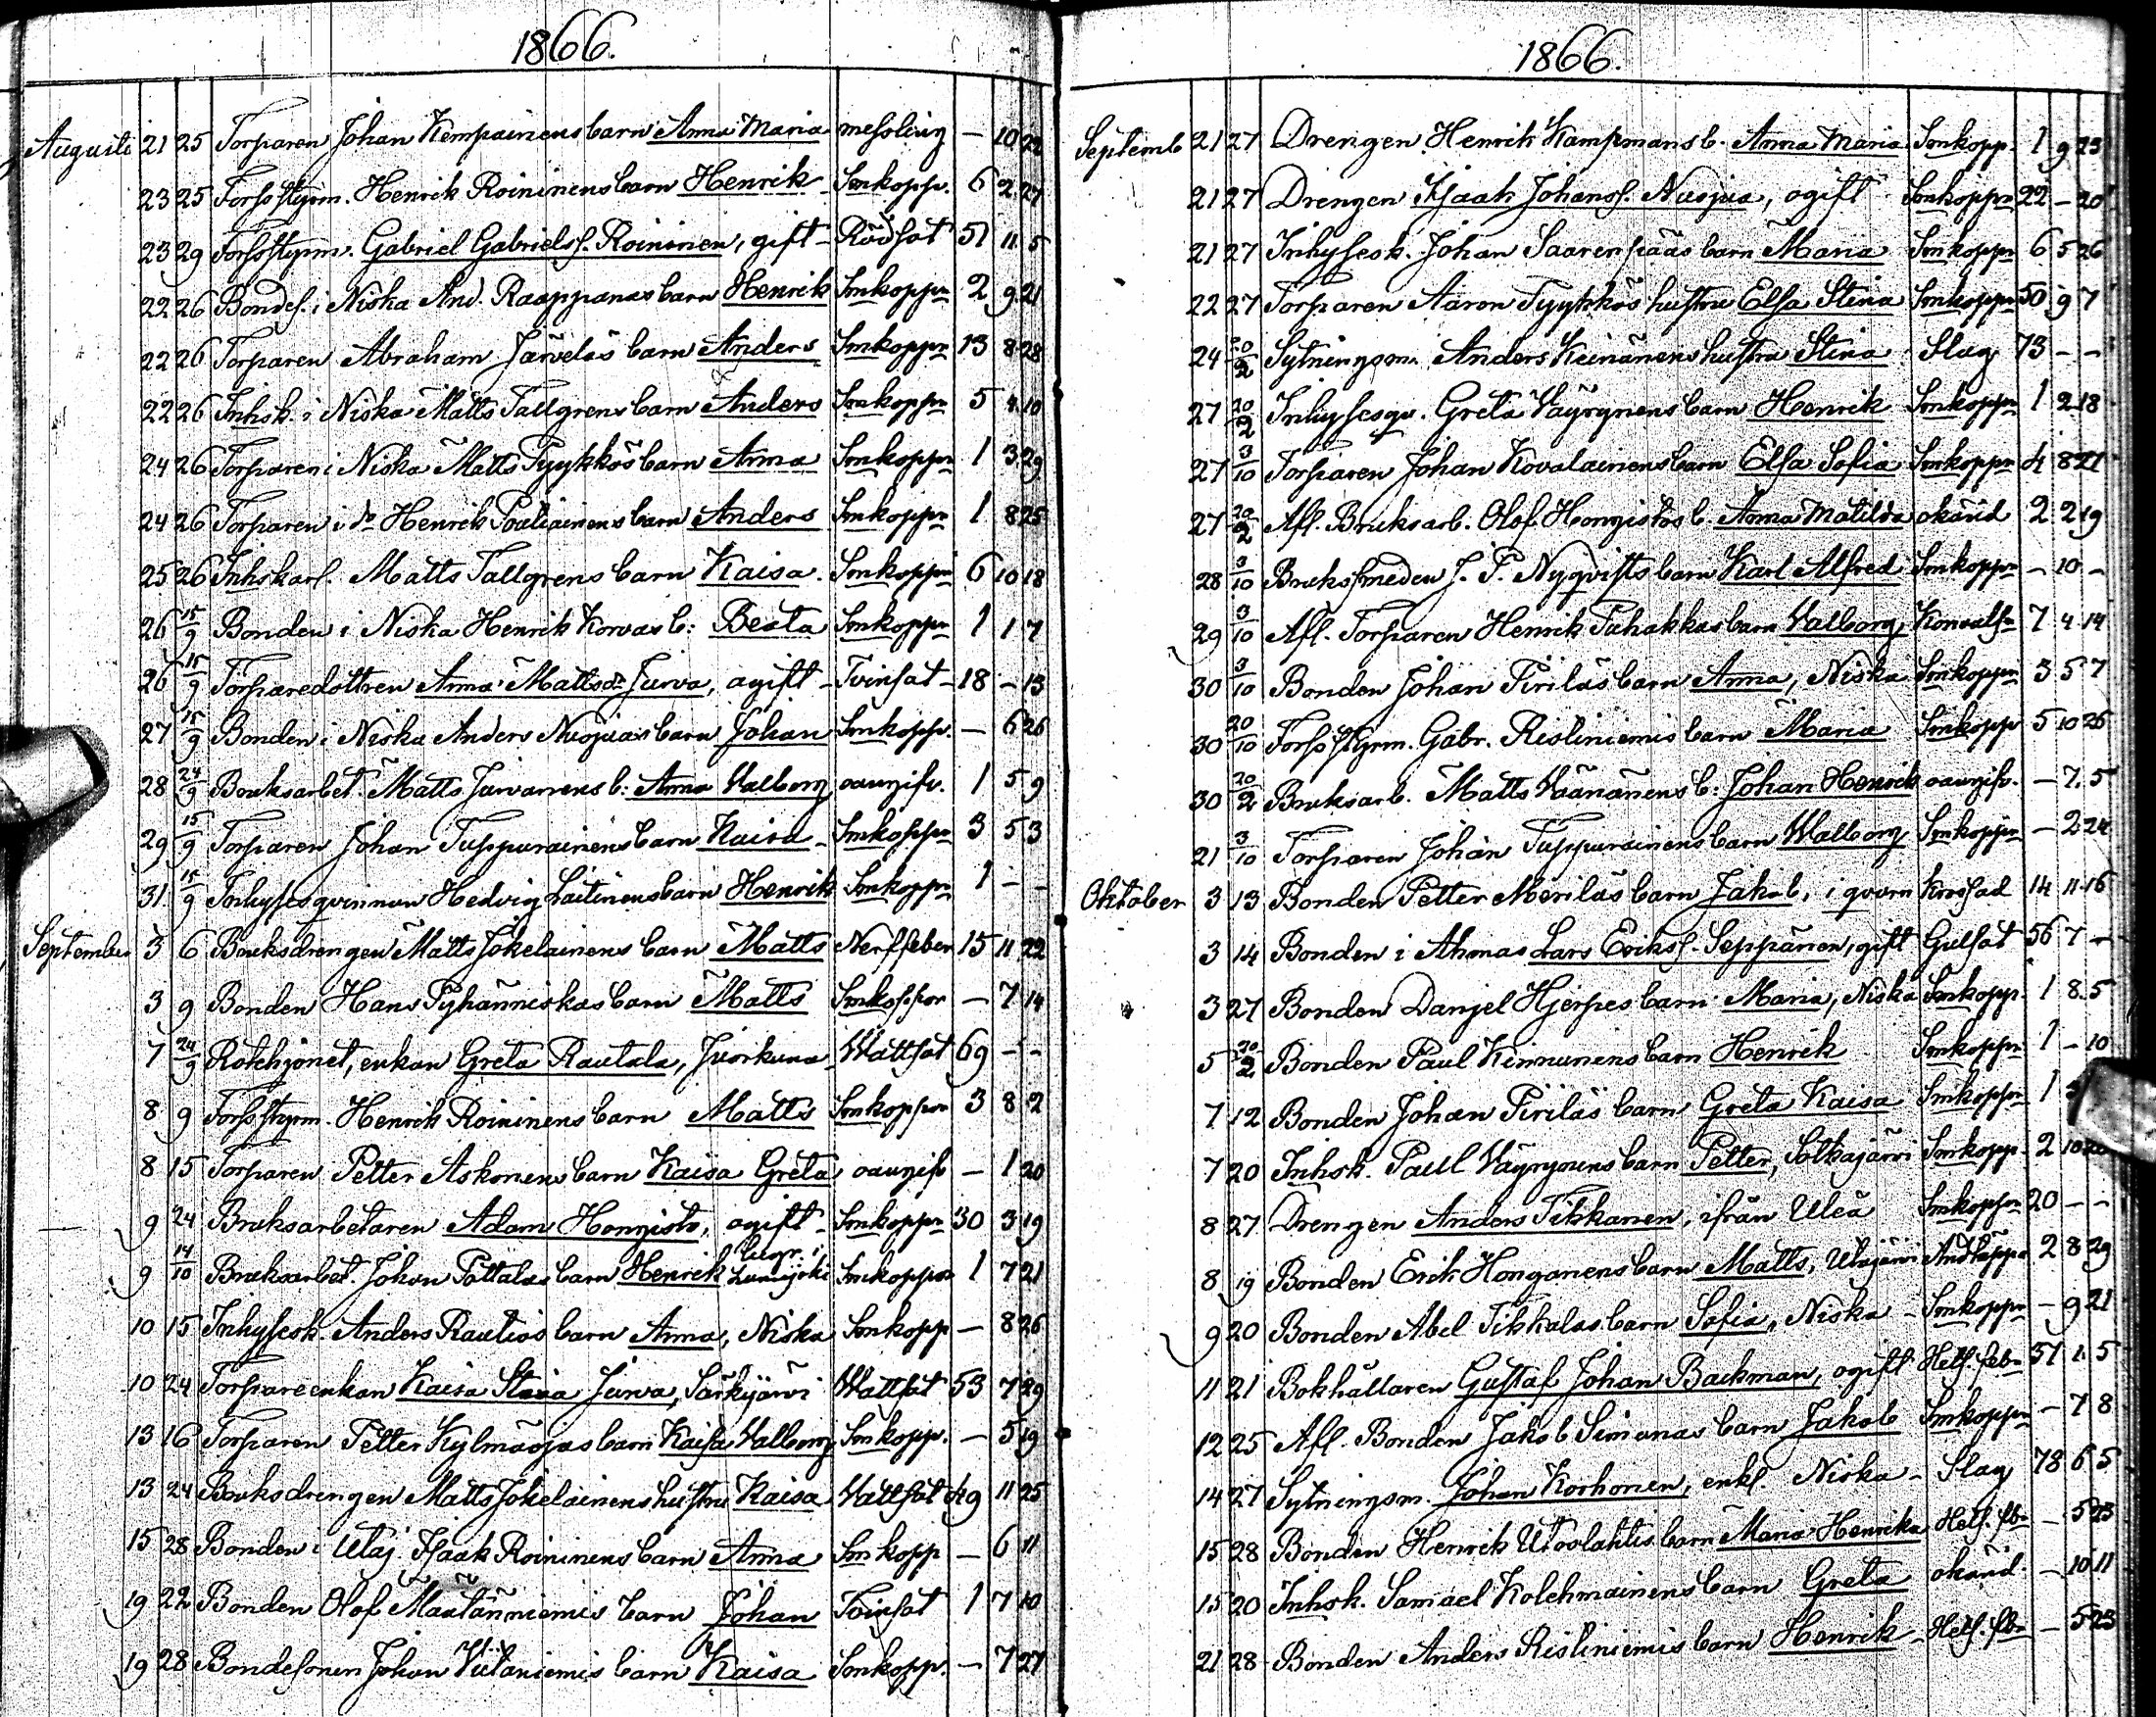 1866.
Augusti 21 25 Torparen Johan Kempainens barn Anna Maria messling — 10 22
23 25 Forsstyrm. Henrik Roininens barn Henrik Smkoppr. 6 2 27
23 29 Forsstyrm. Gabriel Gabrielss. Roininen, gift Rödsot 51 11 5
22 26 Bondes. i Niska And. Raappanas barn Henrik Smkoppr 2 9 21
22 26 Torparen Abraham Järveläs barn Anders Smkoppr 13 8 28
22 26 Inhsk. i Niska Matts Tallgrens barn Anders Smkoppr 5 4 10
24 26 Torparen i Niska Matts Tyykkös barn Anna Smkoppr 1 3 29
24 26 Torparen i do Henrik barn Anders Smkoppr 1 8 25
25 26 Inhskarl. Matts Tallgrens barn Kaisa Smkoppr 6 10 18
26 15/9 Bonden i Niska Henrik Korvas b: Beata Smkoppr 1 1 7
26 15/9 Torparedottren Anna Mattsdr Jurva, ogift - Tvinsot - 18 - 13
27 15/9 Bonden i Niska Anders Nuojuas barn Johan Smkoppr. — 6 26
28 24/9 Bruksarbet. Matts b: Anna Valborg oangifv. 1 5 9
29 15/9 Torparen Johan Tuppurainens barn Kaisa Smkoppr 3 5 3
31 15/9 Inhysesqvinnan Hedvig Laitinens barn Henrik Smkoppr 1 - -
September 3 6 Bruksdrengen Matts Jokelainens barn Matts Nerffeber 15 11 22
3 9 Bonden Hans Pyhänniskas barn Matts Smkoppor — 7 14
7 24/9 Rotehjonet, enkan Greta Rautala, Juorkuna Wattsot 69 - -
8 9 Forsstyrm. Henrik Roininens barn Matts Smkoppor 3 8 2
8 15 Torparen Petter Askonens barn Kaisa Greta oangifv — 1 20
9 24 Bruksarbetaren Adam Hongisto, ogift - Smkoppr 30 3 19
9 14/10 Bruksarbet. Johan Pottalas barn Henrik begr. i Lumijoki Smkoppor 1 7 21
10 15 Inhysesk. Anders Rautios barn Anna, Niska Smkopp — 8 26
10 24 Torpareenkan Kaisa Stina Jurva, Särkijärvi Wattsot 53 7 29
13 16 Torparen Petter Kylmäojas barn Kaisa Valborg Smkopp. — 5 19
13 24 Bruksdrengen Matts Jokelainens hustru Kaisa Vattsot 49 11 25
15 28 Bonden i Utaj. Isaak Roininens barn Anna Smkopp — 6 11
19 22 Bonden Olof Määtänniemis barn Johan Tvinsot 1 7 10
19 28 Bondesonen Johan Viitaniemis barn Kaisa Smkopp. — 7 27
1866.
Septemb 21 27 Drengen Henrik Kampmans b. Anna Maria Smkopp. 1 9 23
21 27 Drengen Isaak Johanss. Nuojua, ogift Smkoppr 22 - 20
21 27 Inhysesk. Johan Saarenpääs barn Maria Smkoppr 6 5 26
22 27 Torparen Aaron Tyykkös hustru Elsa Stina Smkoppr 50 9 7
24 20/2 Sytningsm. Anders Keinänens hustru Stina Slag 73 - -
27 20/2 Inhysesqv. Greta Väyrynens barn Henrik Smkoppr 1 2 18
27 3/10 Torparen Johan Kovalainens barn Elsa Sofia Smkoppr 4 8 21
27 20/2 Afl. Bruksarb. Olof Hongistos b. Anna Matilda okänd 2 2 19
28 3/10 Brukssmeden J. P. Nyqvists barn Karl Alfred Smkoppr - 10 -
29 3/10 Afl. Torparen Henrik Tahakkas barn Valborg 7 4 14
30 3/10 Bonden Johan Piriläs barn Anna, Niska Smkoppr 3 5 7
30 20/10 Forsstyrm. Gabr. Risliniemis barn Maria Smkopp 5 10 25
30 20/2 Bruksarb. Matts Väänänens b: Johan Henrik oangifv. — 7. 5
21 3/10 Torparen Johan Tuppurainens barn Walborg Smkoppr — 2 24
Oktober 3 13 Bonden Petter Meriläs barn Jakob, i qvarn krossad 14 11 16
3 14 Bonden i Ahmas Lars Erikss. Seppänen, gift Gulsot 56 7 -
3 27 Bonden Danjel Hjerpes barn Maria, Niska Smkopp. 1 8 5
5 20/2 Bonden Paul Kinnunens barn Henrik Smkoppr 1 - 10
7 12 Bonden Johan Piriläs barn Greta Kaisa Smkoppr 1
7 20 Inhsk. Paul Väyrynens barn Petter, Sotkajärvi Smkopp. 2 10
8 27 Drengen Anders Tikkanen, ifrån Uleå Smkoppr 20 - -
8 19 Bonden Erik Honganens barn Matts, Utajärvi Andtäppa 2 8 29
9 20 Bonden Abel Tikkalas barn Sofia, Niska - Smkoppr - 9 21
11 21 Bokhållaren Gustaf Johan Backman, ogift Hetf. febr 51 1 5
12 25 Afl. Bonden Jakob Simonas barn Jakob Smkoppr - 7 8
14 27 Sytningsm. Johan Korhonen, enkl. Niska - Slag 78 6 5
15 28 Bonden Henrik Utoslahtis barn Maria Henrika Hetf. fbr - 5 23
15 20 Inhsk. Samuel Kolehmainens barn Greta okänd. - 10 11
21 28 Bonden Anders Risliniemis barn Henrik - Hetf. fbr - 5 23